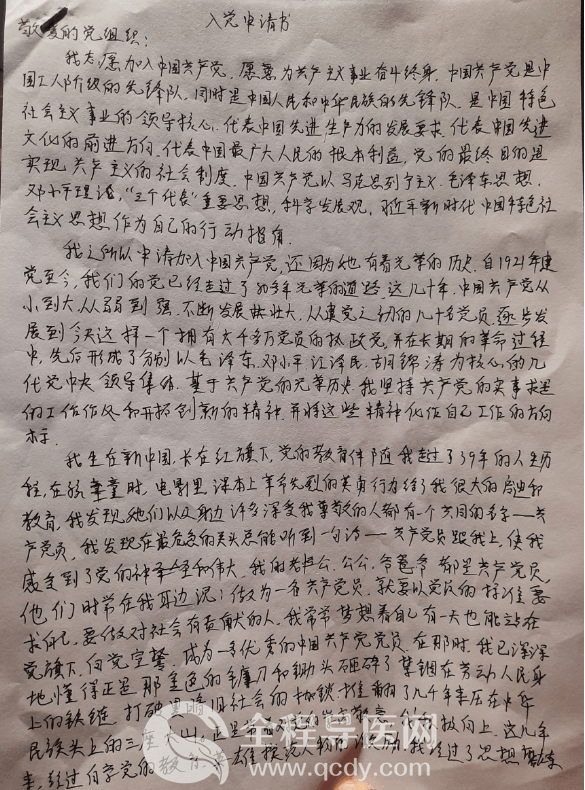 入党申请书
敬爱的党组织：
我志愿加入中国共产党，愿意为共产主义事业奋斗终身，中国共产党是中
国工人阶级的先锋队，同时是中国人民和中华民族的先锋队，是中国特色
社会主义事业的领导核心，代表中国先进生产力的发展要求，代表中国先进
文化的前进方向，代表中国最广大人民的根本利益，党的最终目的是
实现共产主义的社会制度，中国共产党以马克思列宁主义、毛泽东思想、
邓小平理论，“三个代表”重要思想，科学发展观，习近平新时代中国特色社
会主义思想作为自己的行动指南。
我之所以申请加入中国共产党，还因为她有着光荣的历史，自1921年建
党至今，我们的党已经走过了 多年光荣的道路，这几十年，中国共产党从
小到大，从弱到强，不断发展壮大，从建党之初的几十名党员，逐步发
展到今天这样一个拥有六千多万党员的执政党，并在长期的革命过程
中，先后形成了分别以毛泽东、邓小平、江泽民、胡锦涛为核心的几
代党中央领导集体，基于共产党的光荣历史，我坚持共产党的实事求是
的工作作风和开拓创新的精神，并将这些精神化作自己工作的方向
标。
我生在新中国，长在红旗下，党的教育伴随我走过了39年的人生历
程，在孩童时，电影里、课本上革命先烈的英勇行为给了我很大的启迪和
教育，我发现她们以及身边许多深受我尊敬的人都有一个共同的名字——共
产党员，我发现在最危急的关头总能听到一句话——共产党员跟我上，使我
感受到了党的神圣和伟大，我的老公、公公、爸爸等都是共产党员，
他们时常在我耳边说：做为一名共产党员，就要以党员的标准要
求自己，要做对社会有贡献的人，我常常梦想着自己有一天也能站在
党旗下，向党宣誓，成为一名优秀的中国共产党党员，在那时，我已深深
地懂得正是那金色的镰刀和锄头砸碎了禁锢在劳动人民身
上的铁链，打破 旧社会的枷锁，推翻了几千年来压在中华
民族头上的三座 山， 正是 积极向上，这几年
来，经过自学党的 我经过了思想
全程导医网
www.qcdy.com